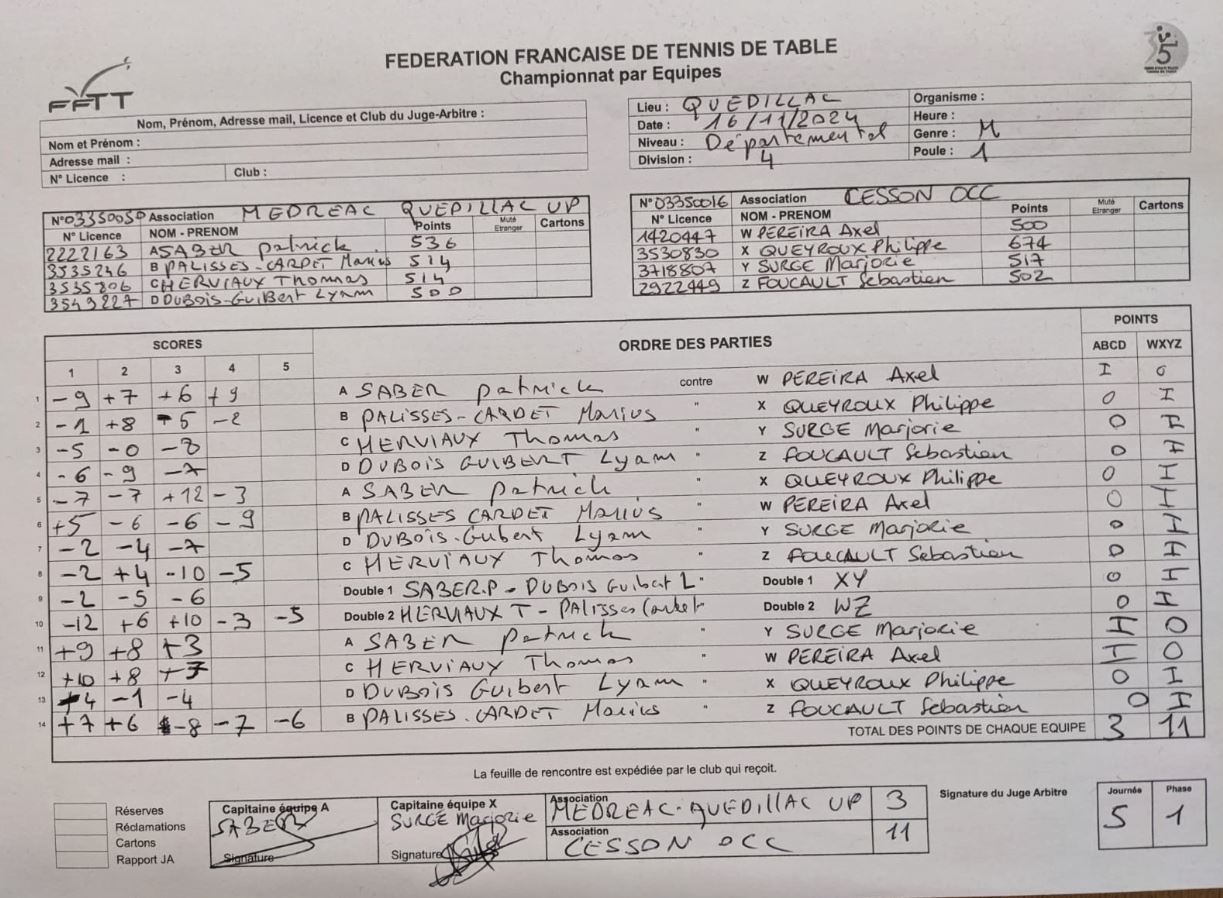 FEDERATION FRANCAISE DE TENNIS DE TABLE
Championnat par Equipes
FFTT
Nom, Prénom, Adresse mail, Licence et Club du Juge-Arbitre :
Nom et Prénom :
Adresse mail :
N° Licence : Club :
Lieu : QUEDILLAC Organisme :
Date : 16/11/2024 Heure :
Niveau : Départemental Genre : M
Division : 4 Poule : 1
N°03350059 Association MEDREAC QUEDILLAC UP
N° Licence NOM - PRENOM Points Muté Etranger Cartons
2222163 A SABER Patrick 536
3535246 B PALISSES-CARDET Marius 514
3535206 C HERVIAUX Thomas 514
3549227 D DUBOIS-GUIBERT Lyam 500
N°03350016 Association CESSON OCC
N° Licence NOM - PRENOM Points Muté Etranger Cartons
1420447 W PEREIRA Axel 500
3530830 X QUEYROUX Philippe 674
3718807 Y SURGE Marjorie 517
2922449 Z FOUCAULT Sebastien 502
SCORES ORDRE DES PARTIES POINTS
1 2 3 4 5 ABCD WXYZ
1 -9 +7 +6 +9 A SABER Patrick contre W PEREIRA Axel I 0
2 -1 +8 -5 -2 B PALISSES-CARDET Marius " X QUEYROUX Philippe 0 I
3 -5 -0 -8 C HERVIAUX Thomas " Y SURGE Marjorie 0 I
4 -6 -9 -7 D DUBOIS GUIBERT Lyam " Z FOUCAULT Sebastien 0 I
5 -7 -7 +12 -3 A SABER Patrick " X QUEYROUX Philippe 0 I
6 +5 -6 -6 -9 B PALISSES CARDET Marius " W PEREIRA Axel 0 I
7 -2 -4 -7 D DUBOIS-Guibert Lyam " Y SURGE Marjorie 0 I
8 -2 +4 -10 -5 C HERVIAUX Thomas " Z FOUCAULT Sebastien 0 I
9 -2 -5 -6 Double 1 SABER.P - DUBOIS Guibert L " Double 1 XY 0 I
10 -12 +6 +10 -3 -5 Double 2 HERVIAUX T - PALISSES Cardet " Double 2 WZ 0 I
11 +9 +8 +3 A SABER Patrick " Y SURGE Marjorie I 0
12 +10 +8 +7 C HERVIAUX Thomas " W PEREIRA Axel I 0
13 -4 -1 -4 D DUBOIS Guibert Lyam " X QUEYROUX Philippe 0 I
14 +7 +6 -8 -7 -6 B PALISSES.CARDET Marius " Z FOUCAULT Sebastien 0 I
TOTAL DES POINTS DE CHAQUE EQUIPE 3 11
La feuille de rencontre est expédiée par le club qui reçoit.
Réserves
Réclamations
Cartons
Rapport JA
Capitaine équipe A
SABER
Signature
Capitaine équipe X
SURGE Marjorie
Signature
Association
MEDREAC-QUEDILLAC UP 3
Association
CESSON OCC 11
Signature du Juge Arbitre
Journée Phase
5 1